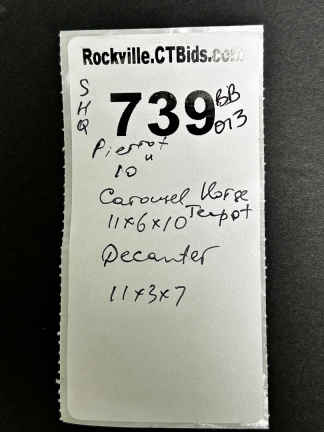 Rockville.CTBids.com
SHQ
739
BB
013
Pierrot
10"
Carousel Horse
11x6x10 Teapot
Decanter
11x3x7